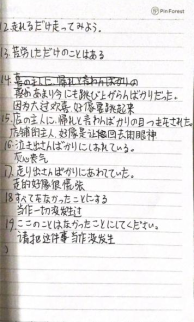 Pin Forest
12.走れるだけ走ってみよう。
13.苦労しただけのことはある
14.
喜びあまり今にも跳び上がらんばかりだった。
因为太过欢喜 好像要跳起来
15.店の主人に帰れと言わんばかりの目つきをされた。
店铺的主人 好像是让他回去的眼神
16.泣き出さんばかりにしおれている。
灰心丧气
17.走り出さんばかりにあわてていた。
走的好像很慌张
18.すべてをなかったことにする
当作一切没发生过
19.ここのことはなかったことにしてください。
请把这件事当作没发生